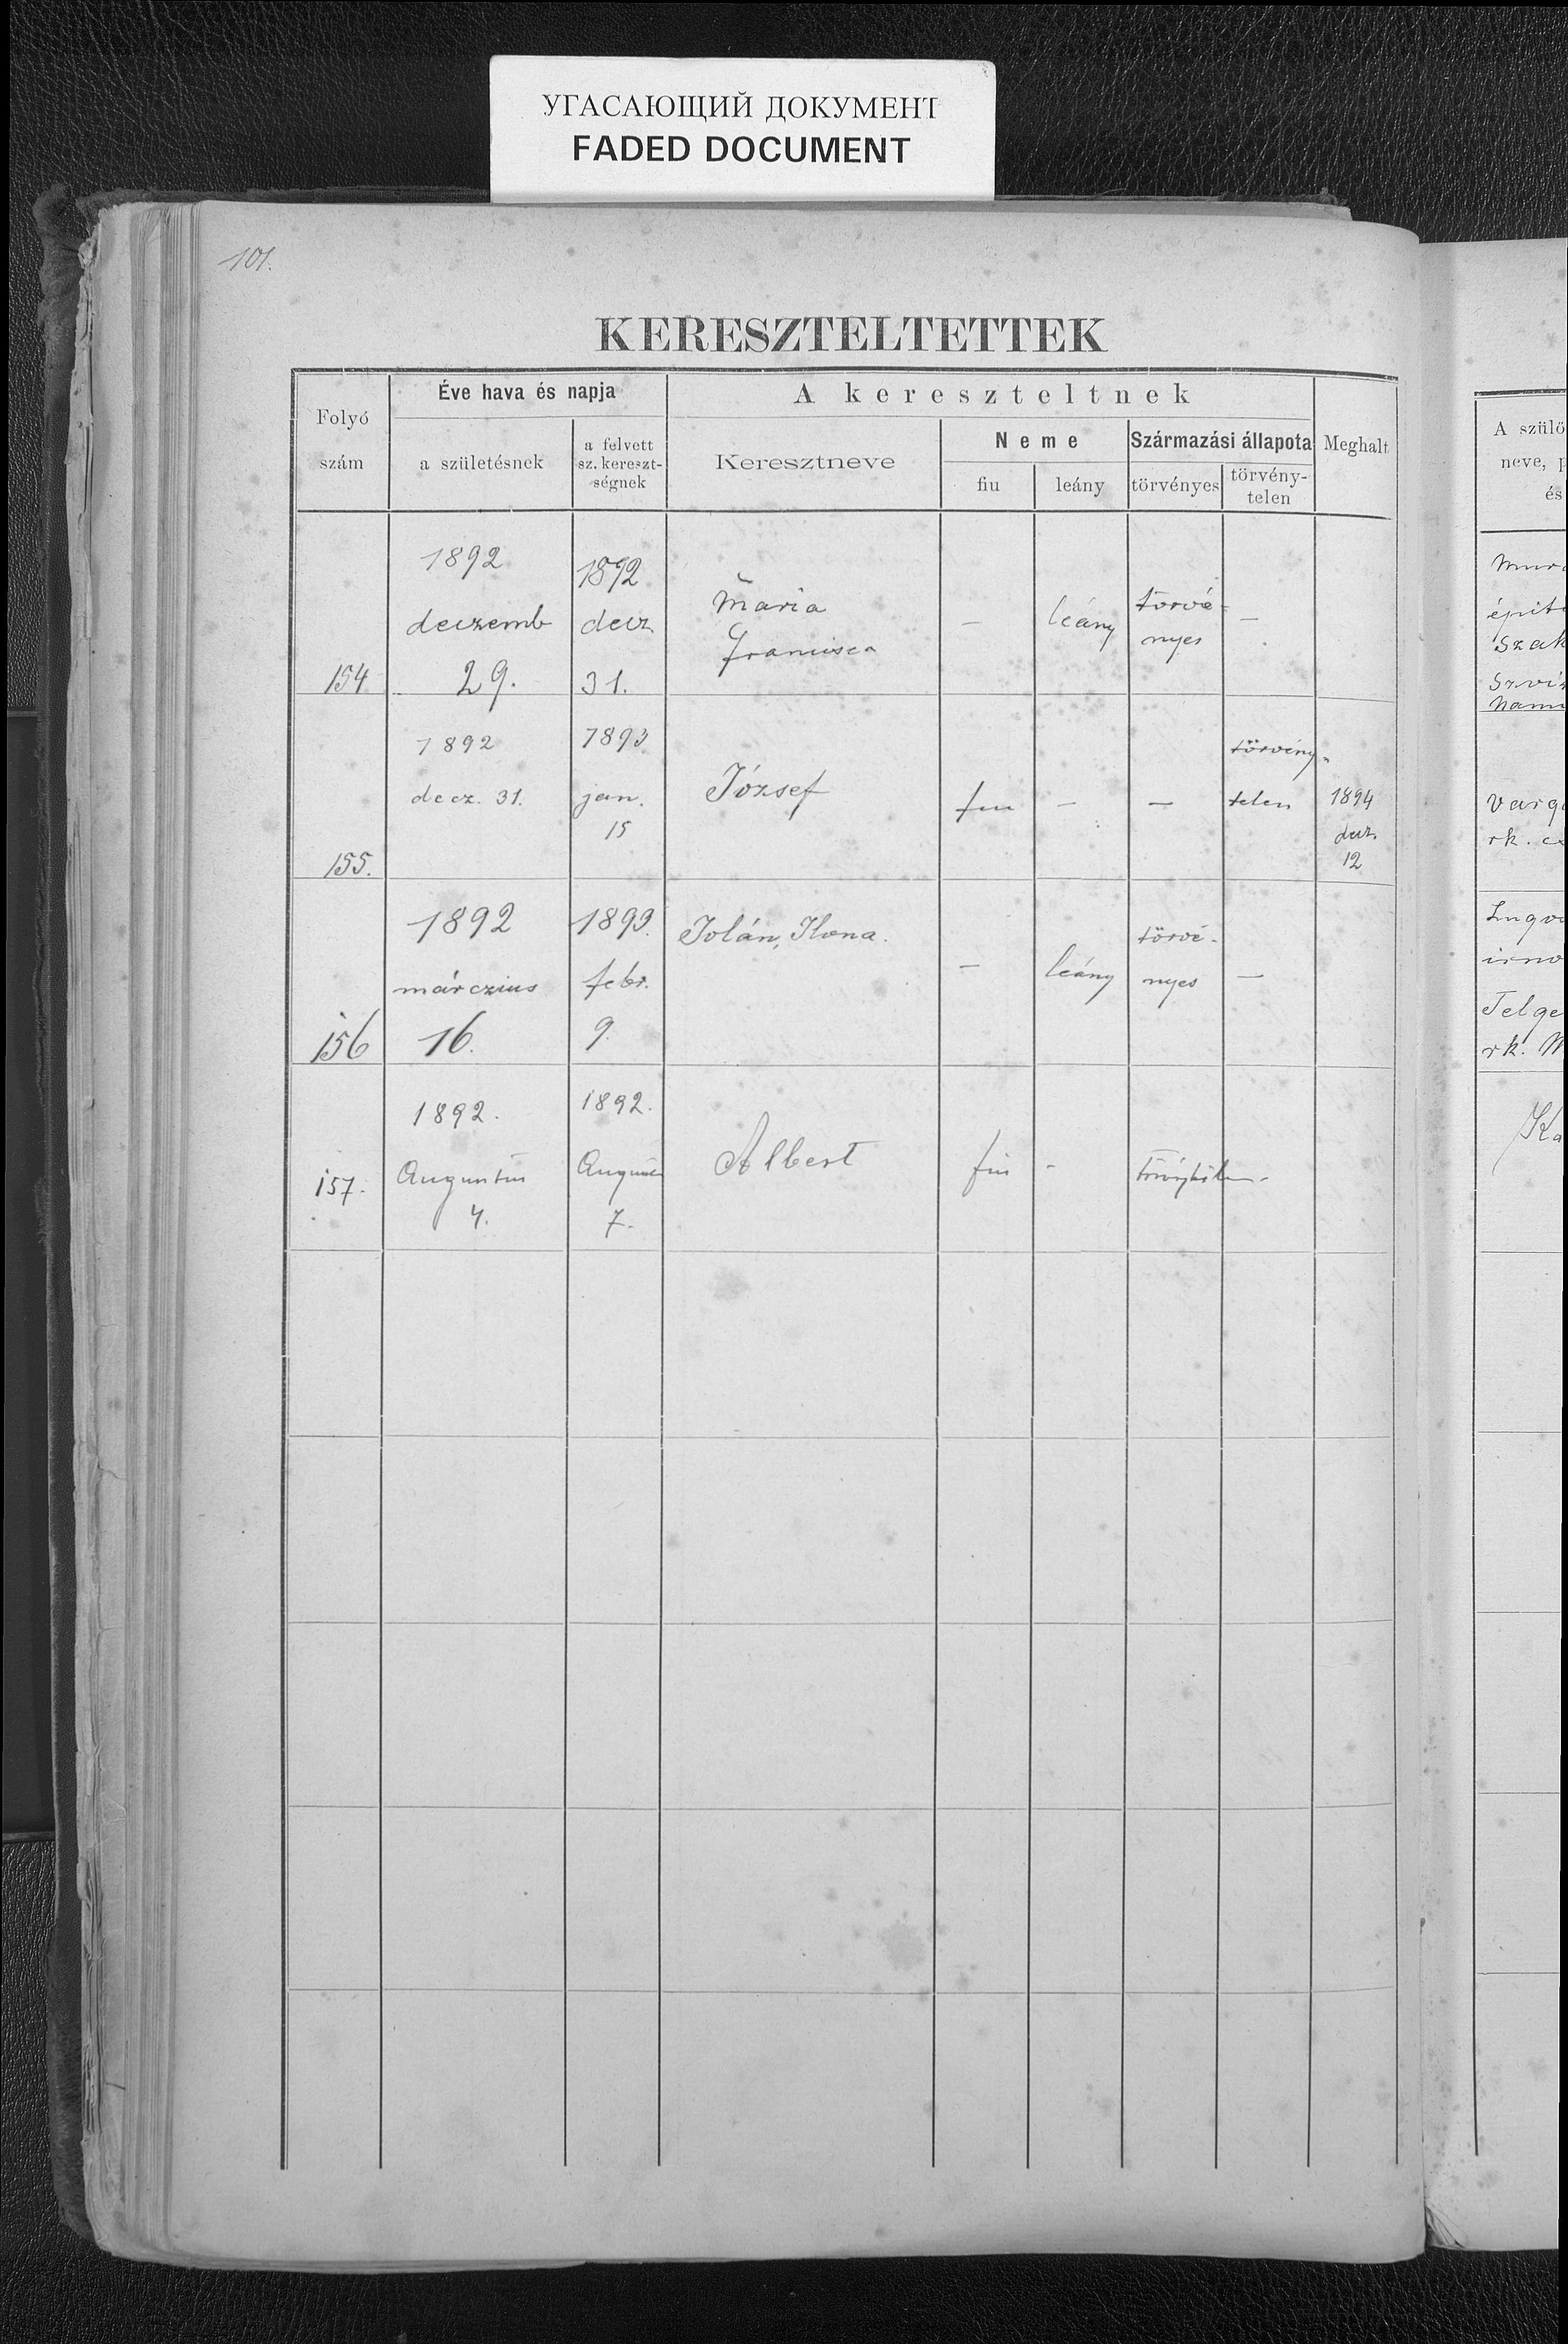 УГАСАЮЩИЙ ДОКУМЕНТ
FADED DOCUMENT
101.
KERESZTELTETTEK
Folyó
szám
Éve hava és napja
a születésnek
a felvett
sz. kereszt-
ségnek
A kereszteltnek
Keresztneve
Neme
fiu
leány
Származási állapota
törvényes
törvény-
telen
Meghalt
154
1892
deczemb
29.
1892
decz.
31.
Maria
Francisca
—
leány
törvé-
nyes
—
155.
1892
decz. 31.
1893
jan.
15
József
fiu
—
—
törvény-
telen
1894
decz.
12
156
1892
márczius
16.
1893.
febr.
9.
Jolán, Ilona.
—
leány
törvé-
nyes
—
157.
1892.
Augustus
4.
1892.
August
7.
Albert
fiu
-
A szülő
neve, p
és
épitő
Szak
Szvi
Varga
rk.
irno
Telge
rk. M
Ka